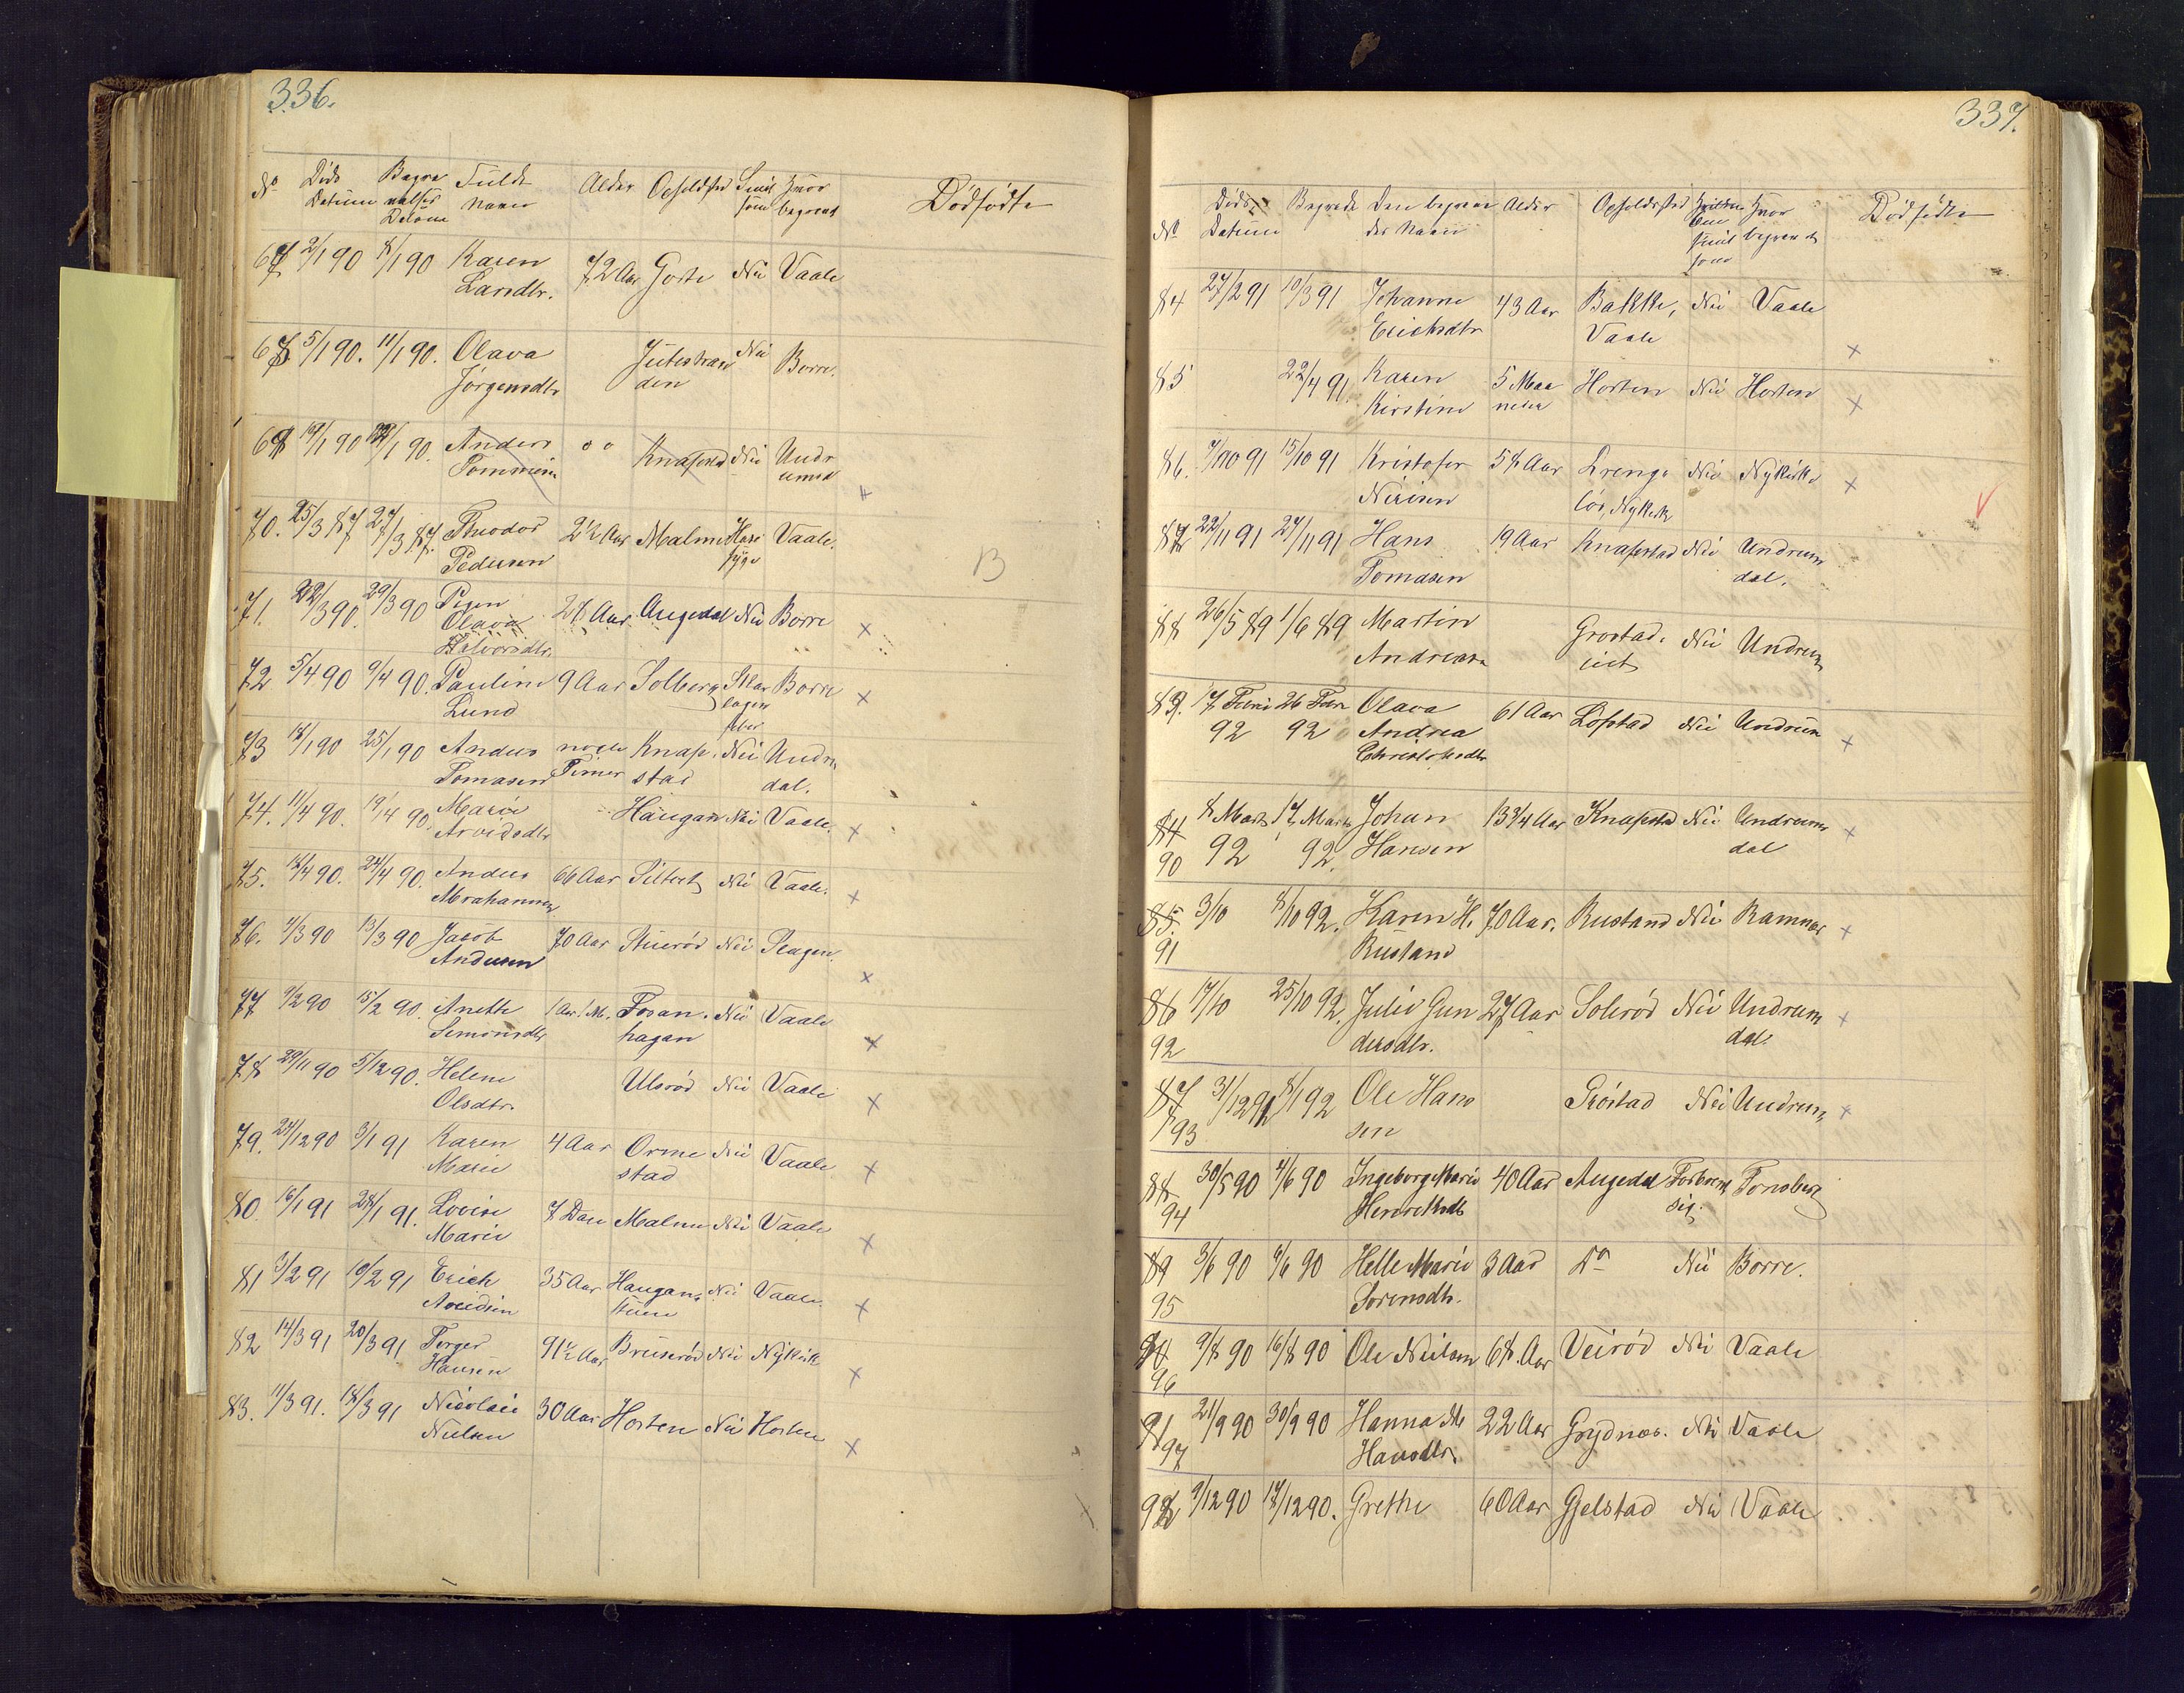 336.
No Døds Datum Begra velses Datum Fulde Navn Alder Opholdsted Smit som Hvor begravet Dødfødte
67 2/1 90 8/1 90 Karen 72 Aar Goste Nei Vaale
Larsdtr.
68 5/1 90. 11/1 90. Olava Nei Borre.
Jørgensdtr den
69 19/1 90 /1 90. Anders " Knapstad Nei Undr
Tommesen umsd
70. 25/3 87 27/3 87. Theodor 2 1/2 Aar Malm Hals Vaale.
Pedersen syge
71. 22/3 90. 29/3 90 Pigen 28 Aar Augedal Nei Borre x
Olava
Halvorsdtr.
72 5/4 90 9/4 90. Pauline 9 Aar Solberg Skar Borre x
Lund lagen
feber
73 18/1 90 25/1 90 Anders nogle Knap. Nei Undru
Tomasen Timer stad dal.
74. 11/4 90. 19/4 90. Marie Haugan Nei Vaale. x
Arvidsdtr
75. 18/4 90. 24/4 90. Anders 66 Aar Nei Vaale. x
Abrahamsen
76. 4/3 90 13/3 90 Jacob 70 Aar Nei x
Andersen
77 9/2 90 15/2 90. Anette 1 Aar 1 M. Fosan. Nei Vaale x
Simonsdtr hagan
78 29/11 90 5/12 90. Helene Ulsrød Nei Vaale x
Olsdtr.
79. 24/12 90 3/1 91 Karen 4 Aar Orme Nei Vaale x
Marie stad
80. 16/1 91 24/1 91. Lovise 7 Dae Malm Nei Vaale x
Marie
81 3/2 91 10/2 91 Erich 35 Aar Haugan, Nei Vaale. x
Arvidsen
82 14/3 91 20/3 91 Torger 91 1/2 Aar Bruserød Nei Nykirk x
Hansen
83. 11/3 91. 18/3 91 Nicolai 30 Aar Horten Nei Horten x
Nielsen
B
337.
No Døds Datum Begravede Den begrave des Navn Alder Opholdsted Hvilken Smit som Hvor begravet Dødfødte
84 27/2 91 10/3 91 Johanne 43 Aar Bakke, Nei Vaale x
Erichsdtr Vaale
85 22/4 91. Karen 5 Maa Horten Nei Horten x
Kirstine neder
86. 7/10 91 15/10 91 Kristofer 54 Aar Drengs Nei Nykirke x
Nilsen løs, Nykirk
87 22/11 91 27/11 91 Hans 19 Aar Knapstad Nei Undrum
Tomasen dal.
88 26/5 89 1/6 89 Martin Grostad. Nei Undrum
Andreasn eiet
89. 17 Febr 26 Febr Olava 61 Aar Løfstad Nei Undrum x
92 92 Andrea
Christofersdtr
84 8 Marts 17 Marts Johan 13 3/4 Aar Knapsta Nei Undrums x
90 92 92. Hansen dal
85. 3/10 8/10 92. Karen H. 70 Aar. Rustand Nei Ramnæs x
91 Rustand
86 17/10 25/10 92. Julie Gun 27 Aar Solerød Nei Undrum x
92 dersdtr. dal.
87 31/12 91 8/1 92 Ole Hans Grøstad Nei Undrum, x
93 sen
88 30/5 90 4/6 90 Ingeborg Marie 40 Aar Augedal Forbrent Tønsberg
94 sig.
89 3/6 90 9/6 90 Helle Marie 3 Aar Do Nei Borre.
95 Sorensdtr.
90 9/8 90 16/8 90 Ole Neilsen 68. Aar Veirød Nei Vaale
96
91 21/9 90 30/9 90 Hanna M 22 Aar Grydnæs. Nei Vaale
97 Hansdtr.
98 9/12 90 17/12 90. Grethe 60 Aar Gjelstad Nei Vaale